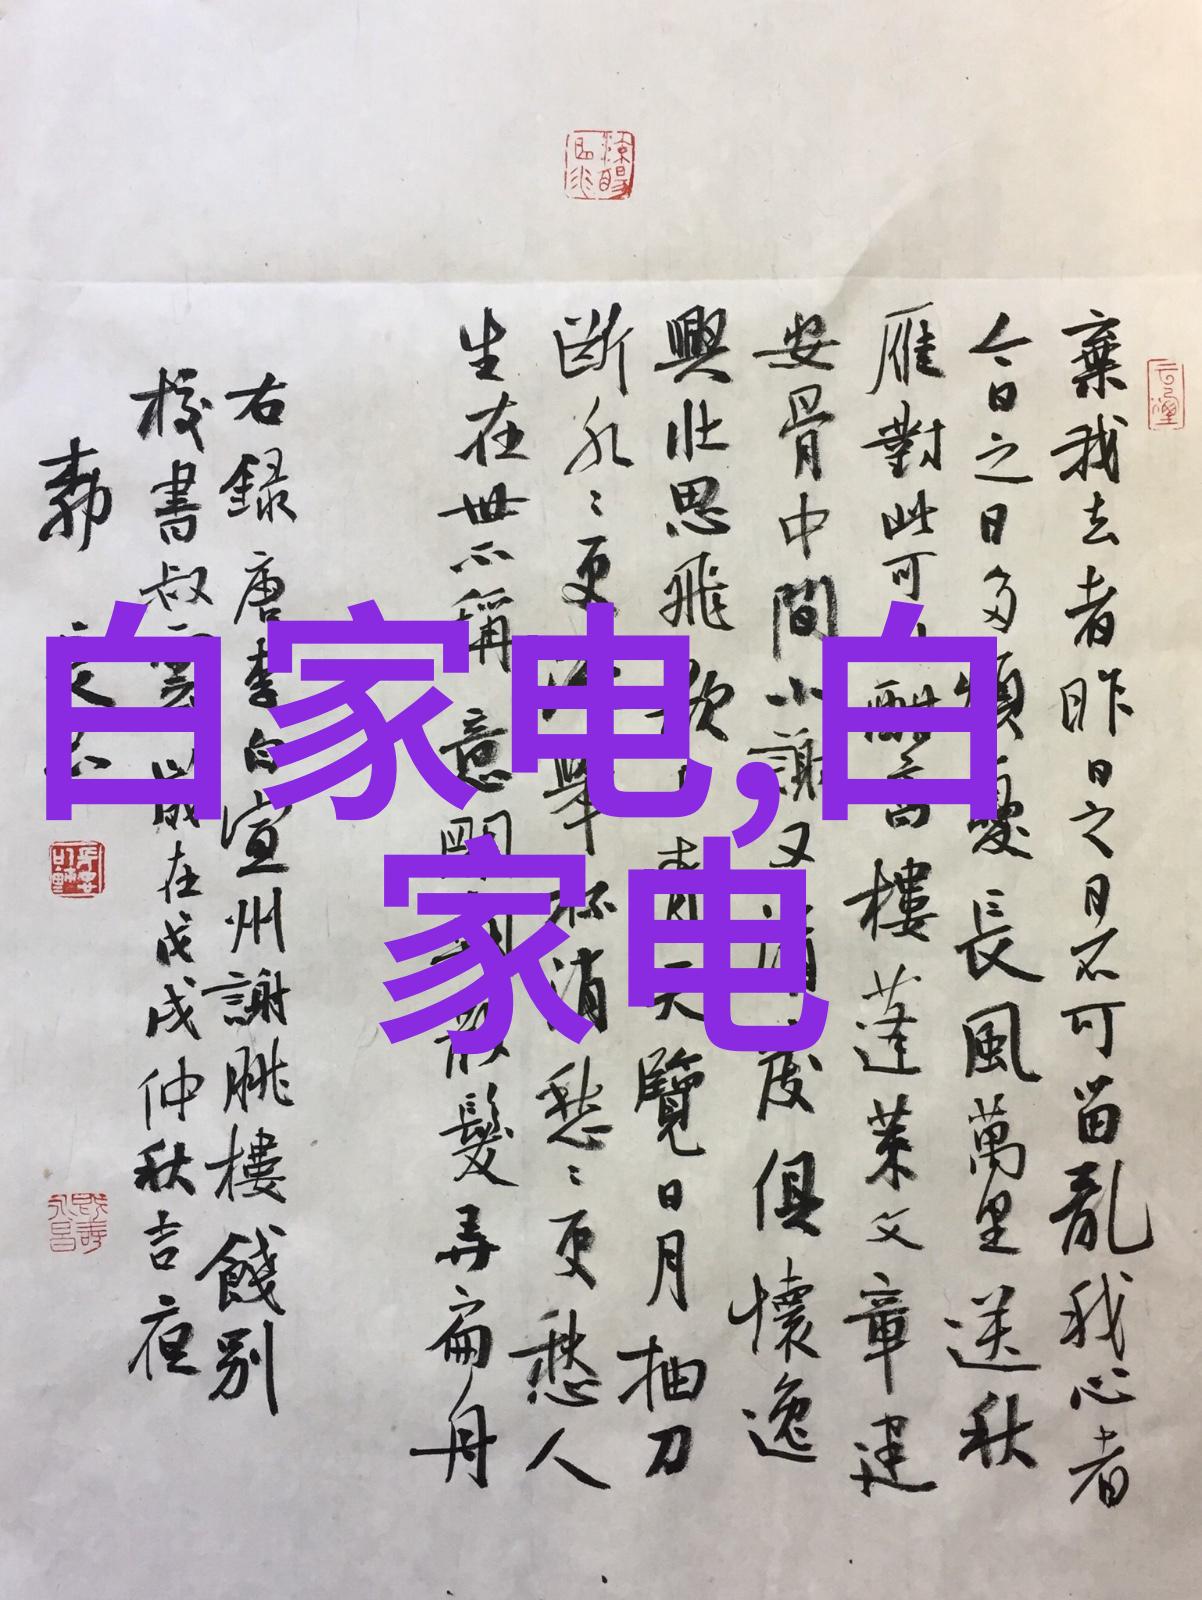 白家电,白
家电
棄我去者昨日之日不可留亂我心者
今日之日多煩憂長風萬里送秋
雁對此可酣高樓蓬萊文章建
安骨中間小謝又清發俱懷逸
興壯思飛欲青天覽日月抽刀
斷水水更流舉杯消愁愁更愁人
生在世不稱意明朝散髮弄扁舟
右録唐李白宣州謝朓樓餞別
校書叔雲歲在戊戌仲秋吉夜